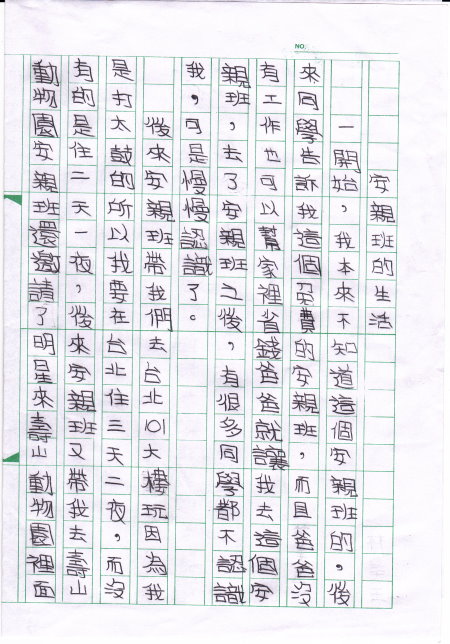 NO.
安親班的生活
一開始，我本來不知道這個安親班的，後
來同學告訴我這個免費的安親班，而且爸爸沒
有工作也可以幫家裡省錢爸爸就讓我去這個安
親班，去了安親班之後，有很多同學都不認識
我，可是慢慢認識了。
後來安親班帶我們去台北101大樓玩因為我
是打太鼓的所以我要在台北住三天二夜，而沒
有的是住二天一夜，後來安親班又帶我去壽山
動物園安親班還邀請了明星來壽山動物園裡面